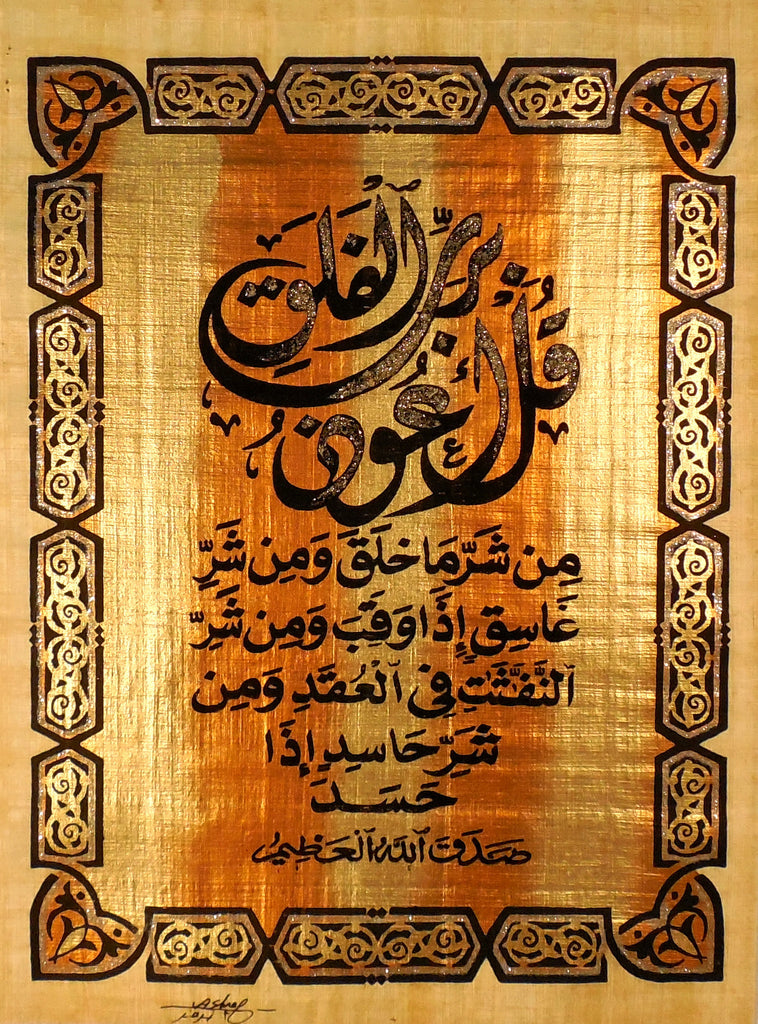 قُلْ أَعُوذُ بِرَبِّ الفَلَقِ
مِن شَرِّ مَا خَلَقَ وَمِن شَرِّ
غَاسِقٍ إِذَا وَقَبَ وَمِن شَرِّ
ٱلنَّفَّٰثَٰتِ فِى ٱلْعُقَدِ وَمِن
شَرِّ حَاسِدٍ إِذَا
حَسَدَ
صَدَقَ ٱللَّهُ ٱلْعَظِيمُ